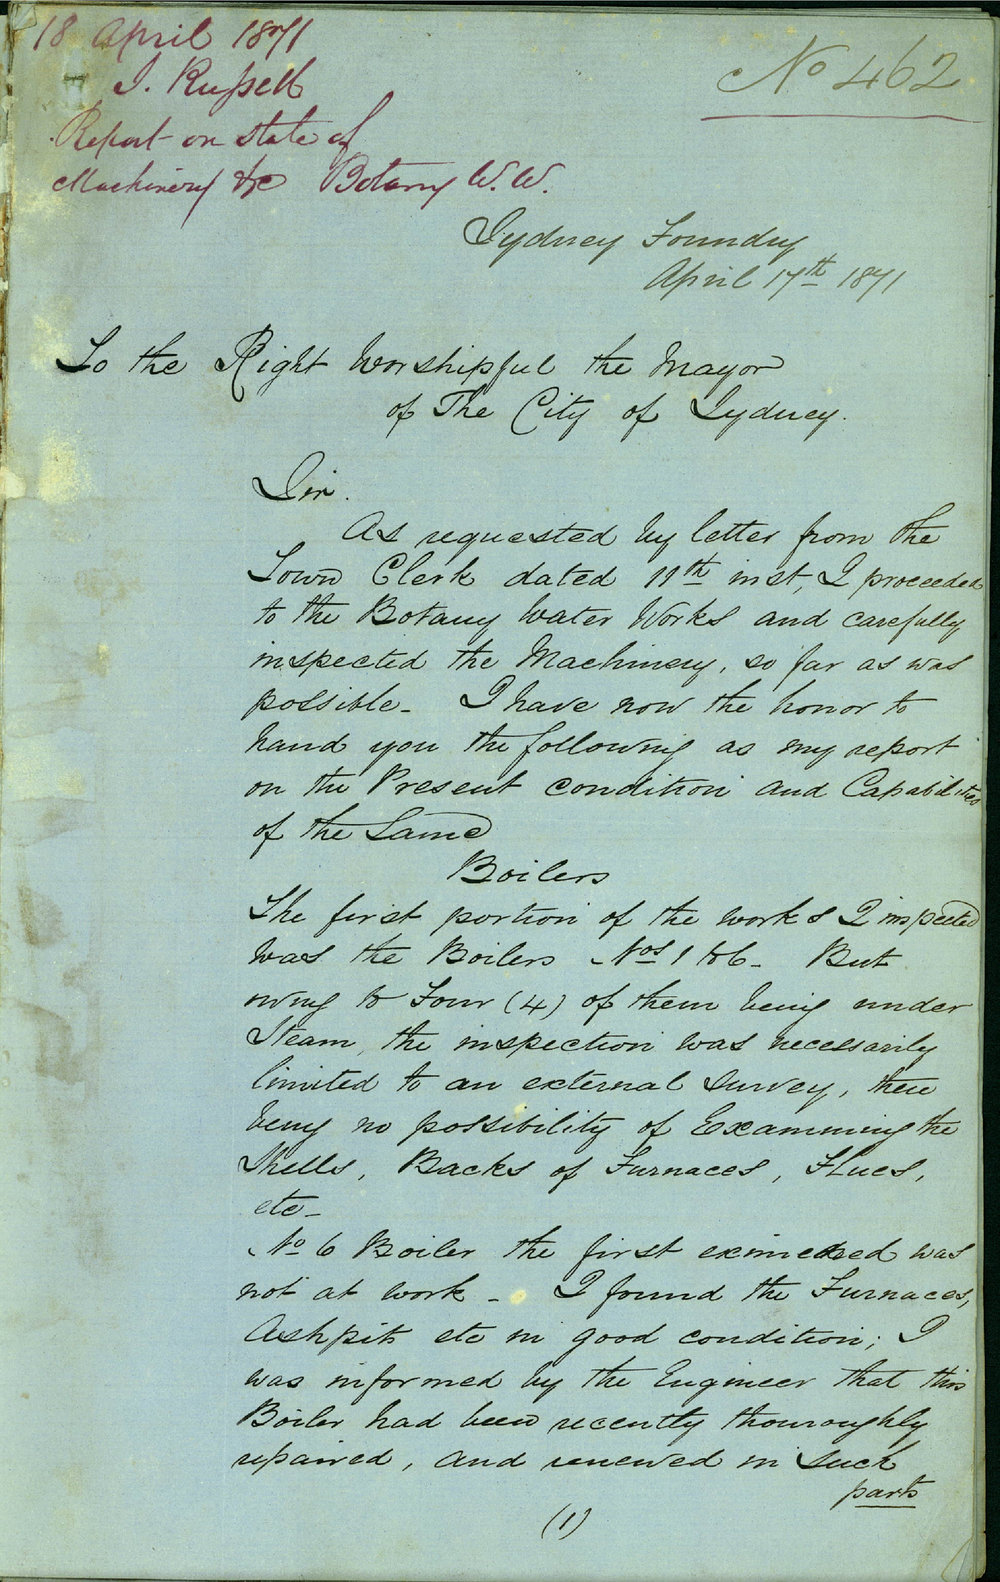 18 April 1871
J. Russell
Report on state of
Machinery &c Botany W.W.
No 462
Sydney Foundry
April 17th 1871
To the Right Worshipful the Mayor
of The City of Sydney.
Sir.
As requested by letter from the
Town Clerk dated 11th inst, I proceeded
to the Botany Water Works and carefully
inspected the Machinery, so far as was
possible_ I have now the honor to
hand you the following as my report
on the Present condition and Capabilities
of the Same
Boilers
The first portion of the works I inspected
was the Boilers Nos 1 to 6_ But
owing to Four (4) of them being under
Steam, the inspection was necessarily
limited to an external survey, there
being no possibility of Examining the
Shells, Backs of Furnaces, Flues,
etc_
No 6 Boiler the first examined was
not at work _ I found the Furnaces,
Ashpits etc in good condition; I
was informed by the Engineer that this
Boiler had been recently thouroughly
repaired, and renewed in such
parts
(1)